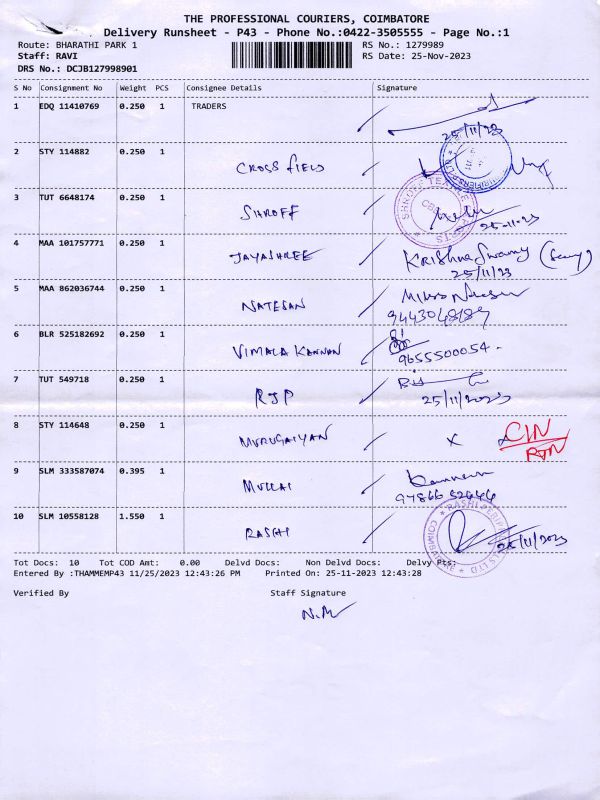 THE PROFESSIONAL COURIERS, COIMBATORE
Delivery Runsheet - P43 - Phone No.:0422-3505555 - Page No.:1
Route: BHARATHI PARK 1 RS No.: 1279989
Staff: RAVI RS Date: 25-Nov-2023
DRS No.: DCJB127998901
S No Consignment No Weight PCS Consignee Details Signature
1 EDQ 11410769 0.250 1 TRADERS
25/11/23
2 STY 114882 0.250 1 CROSS FIELD
3 TUT 6648174 0.250 1 SHROFF
25-11-23
4 MAA 101757771 0.250 1 JAYASHREE Krishna Swamy
25/11/23
5 MAA 862036744 0.250 1 NATESAN
9443048189
6 BLR 525182692 0.250 1 VIMALA KANNAN 9655500054
7 TUT 549718 0.250 1 RJP
25/11/2023
8 STY 114648 0.250 1 MURUGAIYAN X CIN
RTN
9 SLM 333587074 0.395 1 MULLAI
10 SLM 10558128 1.550 1 RASHI 25/11/2023
Tot Docs: 10 Tot COD Amt: 0.00 Delvd Docs: Non Delvd Docs: Delvy Pts:
Entered By :THAMMEMP43 11/25/2023 12:43:26 PM Printed On: 25-11-2023 12:43:28
Verified By Staff Signature
N.M